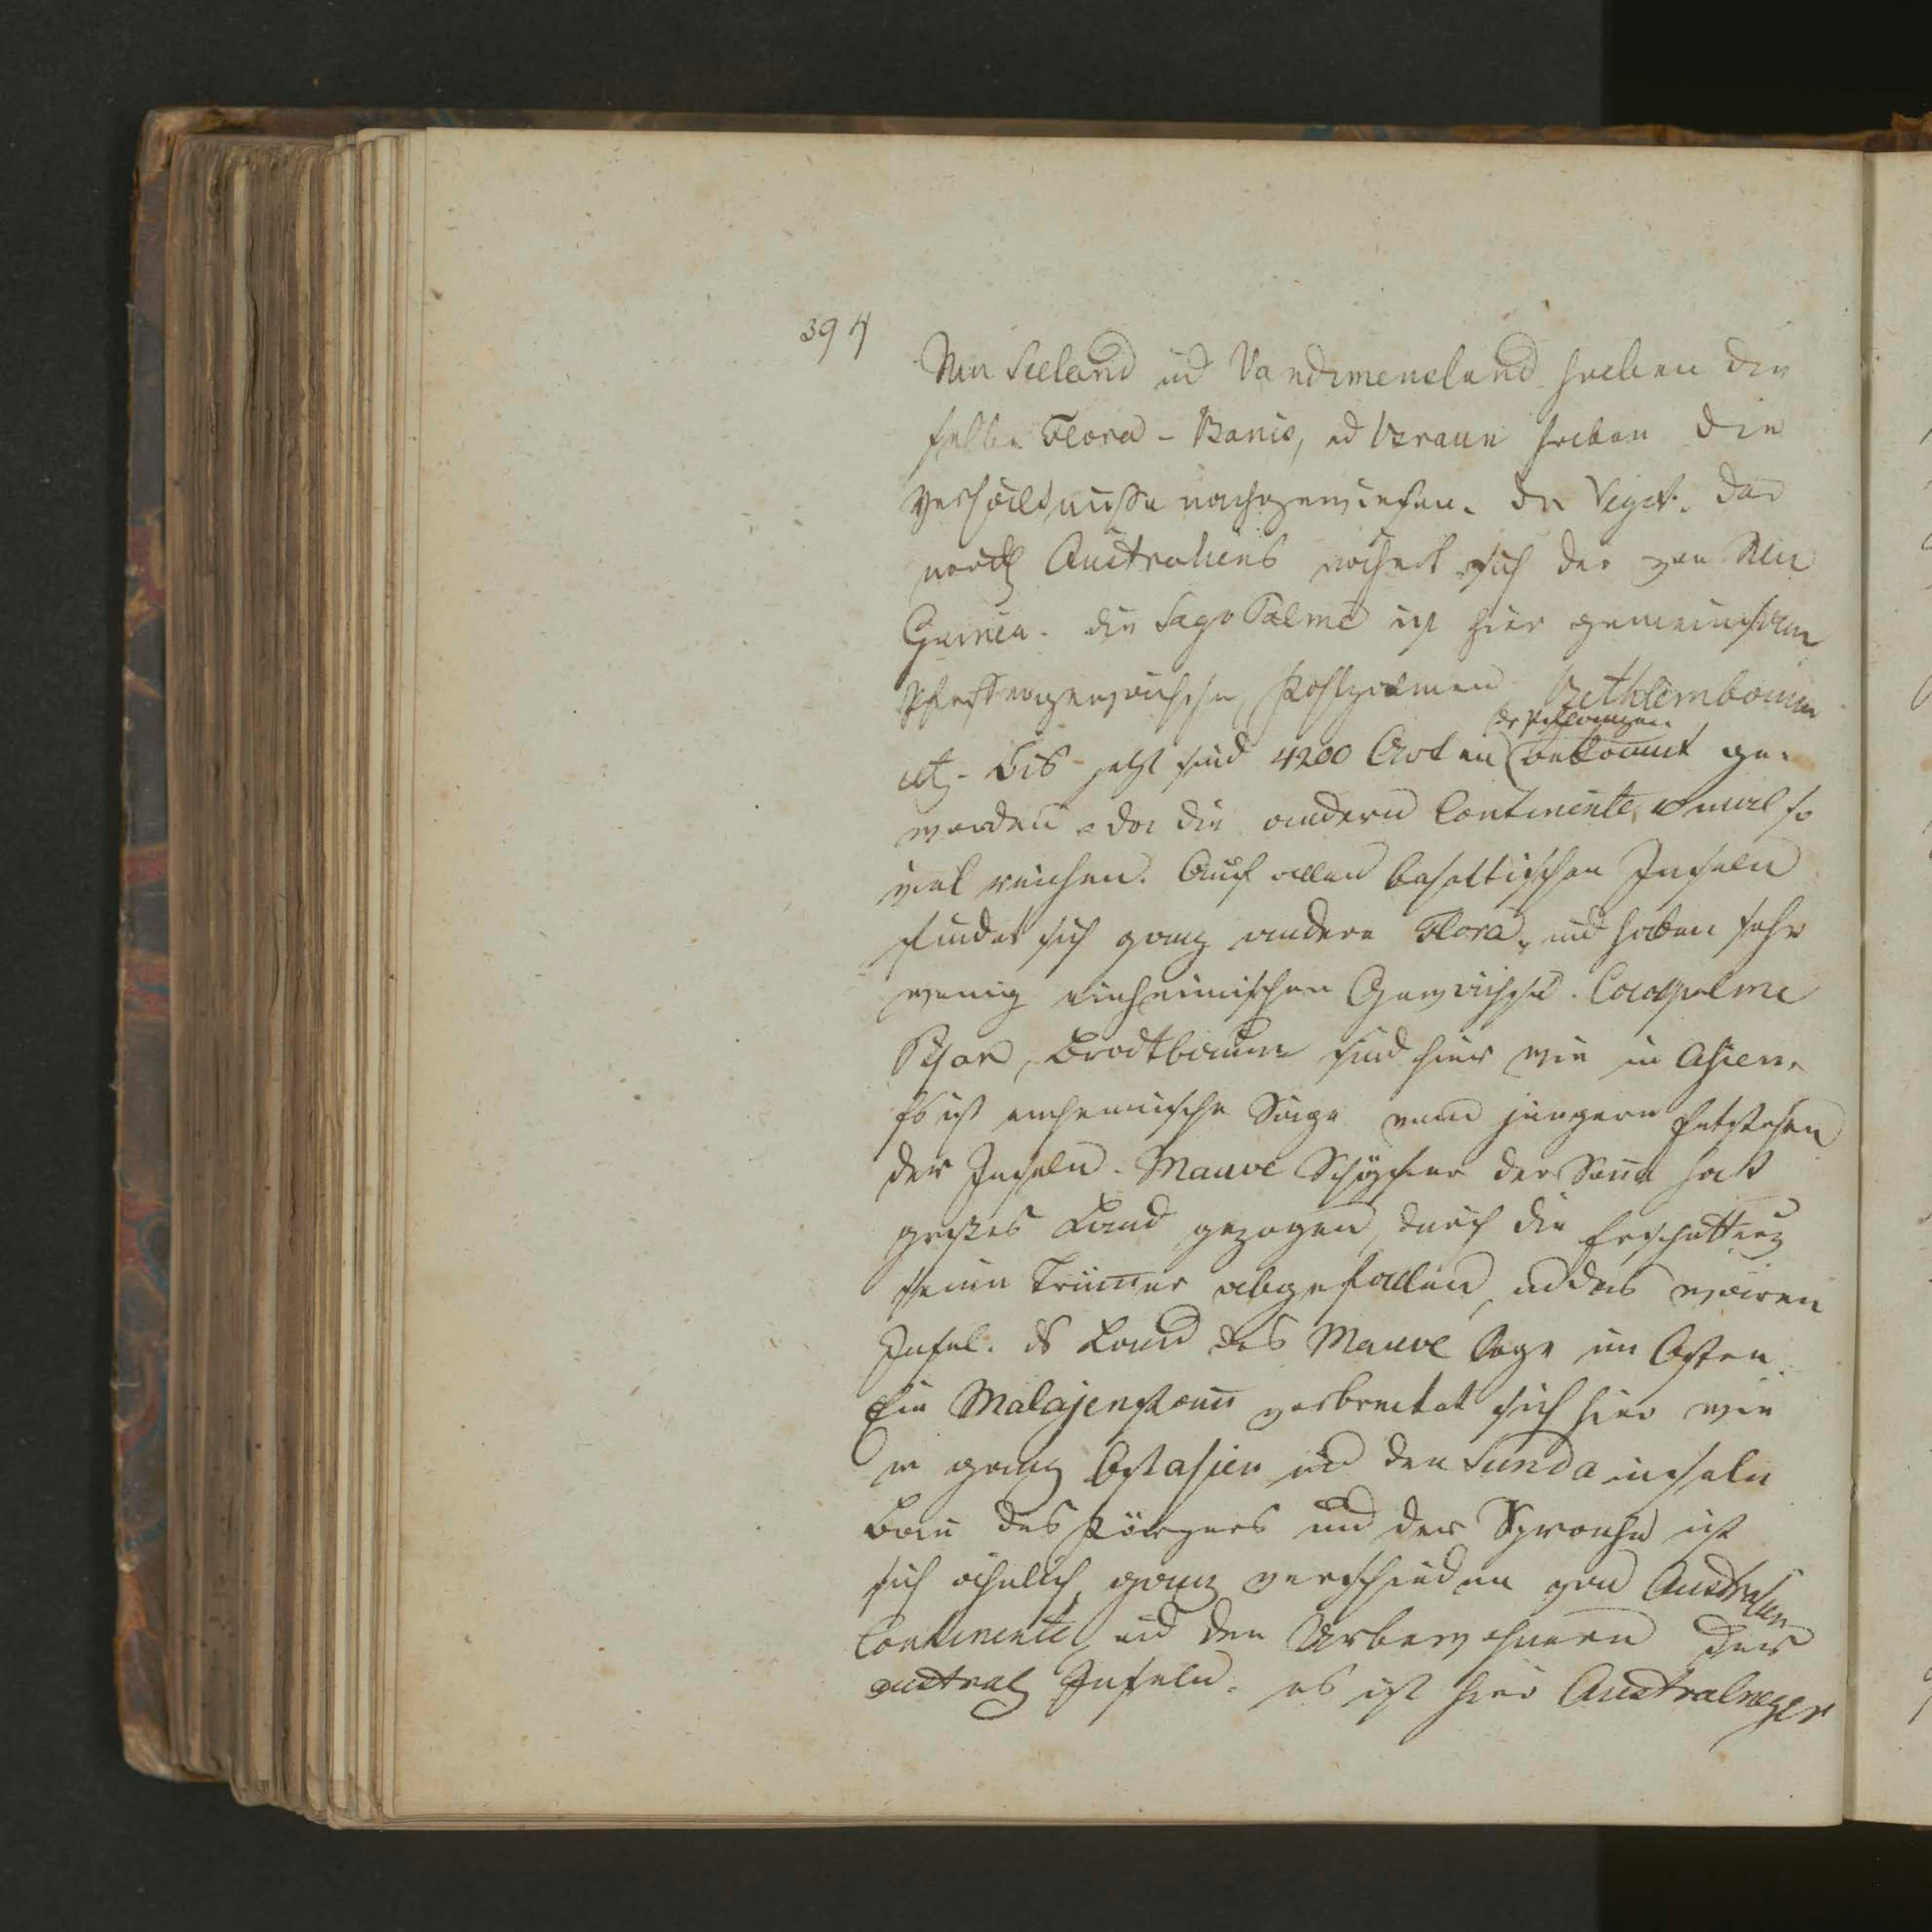 394
Neu Seeland ud Vandimensland haben die
selbe Flora – Banis, ud Braun haben die
Verhältnisse nachgewiesen. Die Veget. des
nördl Australiens nähert sich der von Neu
Guinea. die Sago Palme ist hier gemeinsam
Pfeffergewächse, Kohlpalmen
der Pflanzen
etc. Bis jetzt sind 4200 Arten bekannt ge-
worden, da die andern Continente mal so
viel reichen. Auf allen basaltischen Inseln
findet sich ganz andere Flora, und haben sehr
wenig einheimischen Gewächse. Cocospalme
Pisan, Brodtbaum sind hier wie in Asien.
Es ist einheimische Sage vom jüngern Entstehen
der Inseln. Mauve Schöpfer der Sonne hat
großes Land gezogen, durch die Erschütterung
seien Trümer abgefallen, ud das wären
Insel. ds Land des Mauve lage im Osten
Ein Malajenstam verbreitet sich hier wie
in ganz Ostasien ud den Sundainseln
Bau des Körpers und der Sprache ist
sich ähnlich, ganz verschieden von Australien
Continente, ud den Urbewohnern der
austral Inseln. es ist hier Australneger